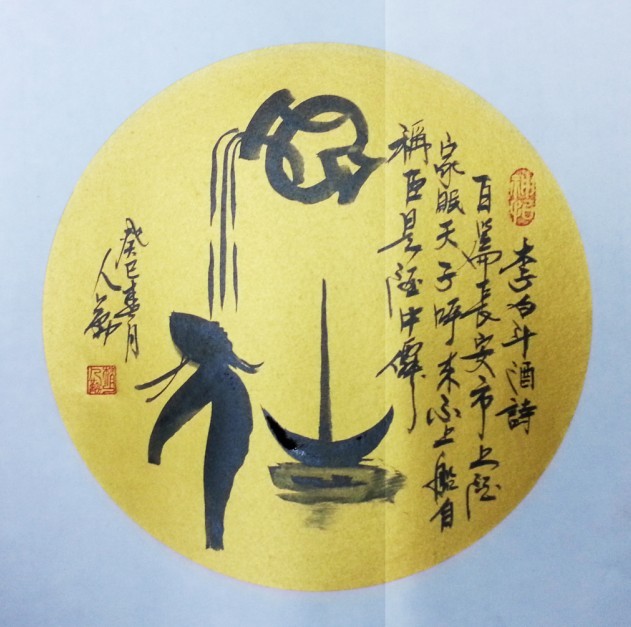 李白斗酒詩
百篇長安市上酒
家眠天子呼来不上船自
稱臣是酒中僊
癸巳春月